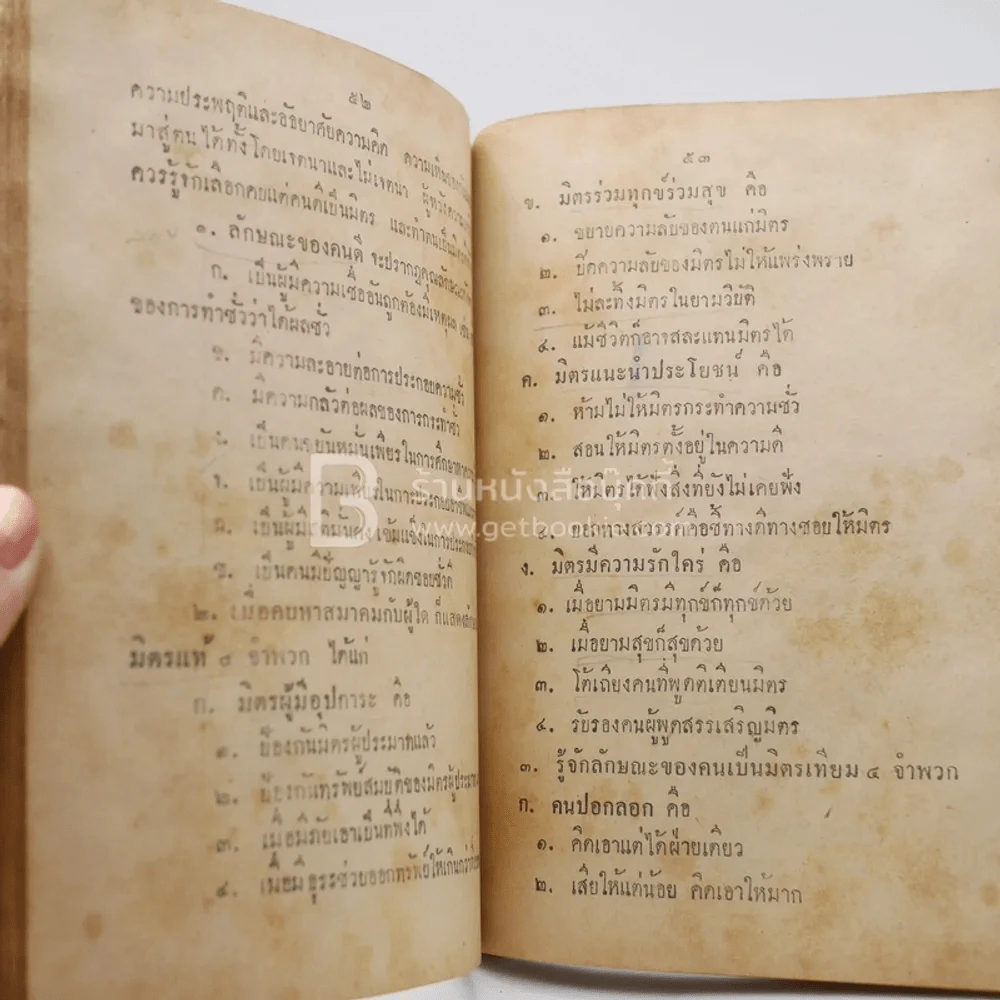 ๕๒
ความประพฤติและอัธยาศัยความคิด ความเห็น
มาสู่ตนได้ทั้งโดยเจตนาและไม่เจตนา ผู้หวังความ
ควรรู้จักเลือกคบแต่คนดีเป็นมิตร และทำตนเป็นมิตร
๑. ลักษณะของคนดี จะปรากฏคุณลักษณะ
ก. เป็นผู้มีความเชื่ออันถูกต้องมีเหตุผล เช่น
ของการทำชั่วว่าได้ผลชั่ว
ข. มีความละอายต่อการประกอบความชั่ว
ค. มีความกลัวต่อผลของการกระทำชั่ว
ง. เป็นคนขยันหมั่นเพียรในการศึกษาหา
จ. เป็นผู้มีความเพียรในการประกอบ
ฉ. เป็นผู้มีสติมั่นคง เข้มแข็งในการประกอบ
ช. เป็นคนมีปัญญารู้จักผิดชอบชั่วดี
๒. เมื่อคบหาสมาคมกับผู้ใด ก็แสดง
มิตรแท้ ๔ จำพวก ได้แก่
ก. มิตรผู้มีอุปการะ คือ
๑. ป้องกันมิตรผู้ประมาทแล้ว
๒. ป้องกันทรัพย์สมบัติของมิตรผู้ประมาท
๓. เมื่อมีภัยเอาเป็นที่พึ่งได้
๔. เมื่อมีธุระช่วยออกทรัพย์ให้เกินกว่า
๕๓
ข. มิตรร่วมทุกข์ร่วมสุข คือ
๑. ขยายความลับของตนแก่มิตร
๒. ปิดความลับของมิตรไม่ให้แพร่งพราย
๓. ไม่ละทิ้งมิตรในยามวิบัติ
๔. แม้ชีวิตก็อาจสละแทนมิตรได้
ค. มิตรแนะนำประโยชน์ คือ
๑. ห้ามไม่ให้มิตรกระทำความชั่ว
๒. สอนให้มิตรตั้งอยู่ในความดี
๓. ให้มิตรได้ฟังสิ่งที่ยังไม่เคยฟัง
๔. บอกทางสวรรค์คือชี้ทางดีทางชอบให้มิตร
ง. มิตรมีความรักใคร่ คือ
๑. เมื่อยามมิตรมีทุกข์ก็ทุกข์ด้วย
๒. เมื่อยามสุขก็สุขด้วย
๓. โต้เถียงคนที่พูดติเตียนมิตร
๔. รับรองคนผู้พูดสรรเสริญมิตร
๓. รู้จักลักษณะของคนเป็นมิตรเทียม ๔ จำพวก
ก. คนปอกลอก คือ
๑. คิดเอาแต่ได้ฝ่ายเดียว
๒. เสียให้แต่น้อย คิดเอาให้มาก
B ร้านหนังสือบุ๊คกี้